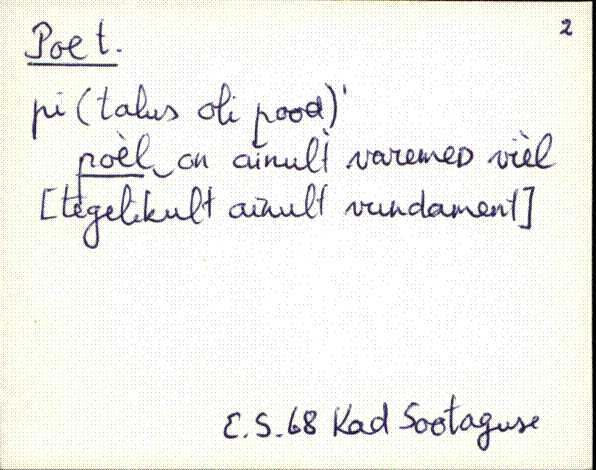 2
Poet.
pi (talus oli pood)'
poèl on ainult varemeD vièl
[tegelikult ainult vundament]
E.S. 68 Kad Sootaguse